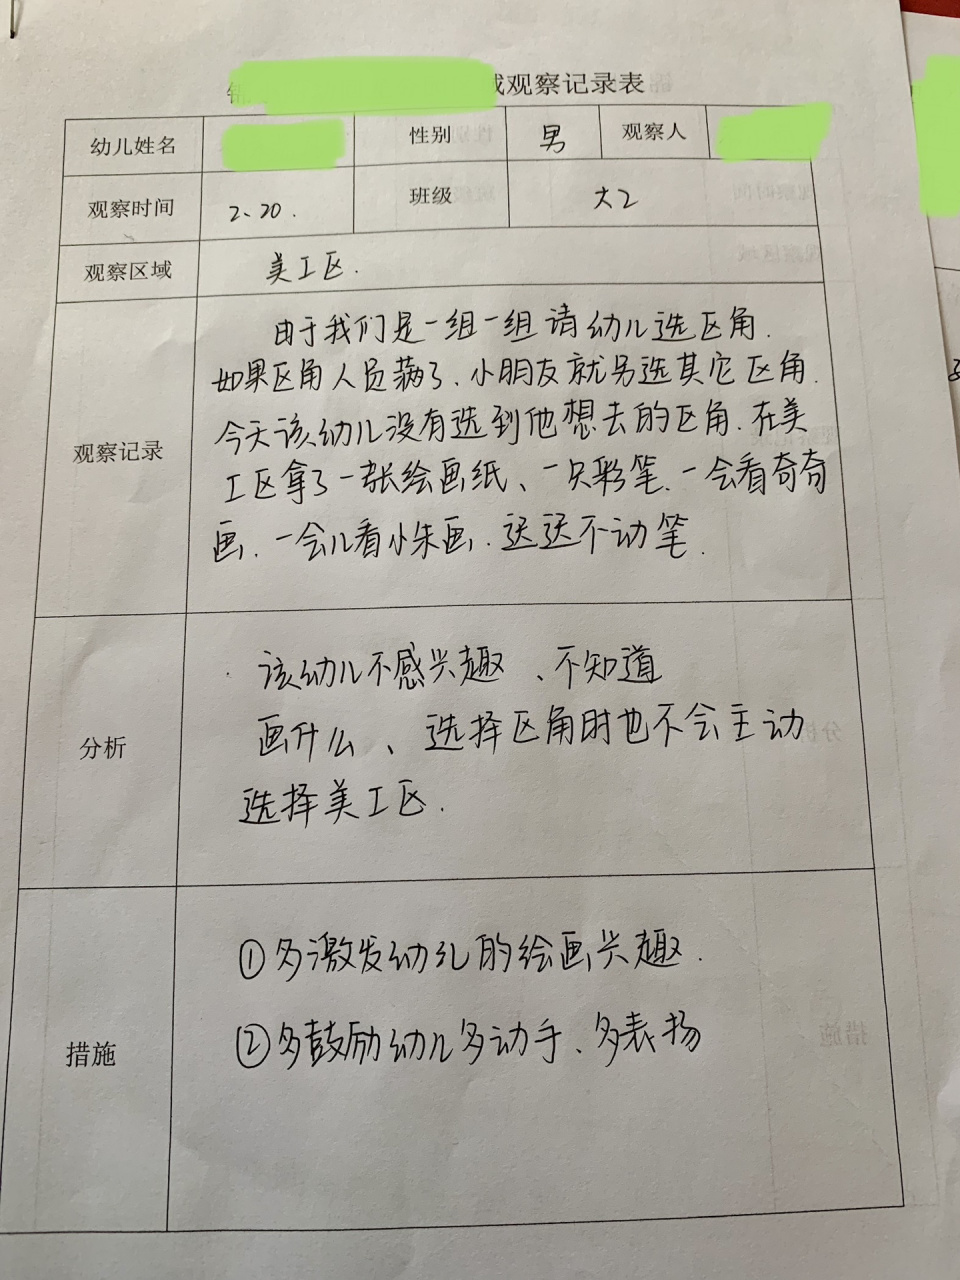 观察记录表
幼儿姓名 性别 男 观察人
观察时间 2、20. 班级 大2
观察区域 美工区.
观察记录
由于我们是一组一组请幼儿选区角.
如果区角人员满了、小朋友就另选其它区角.
今天该幼儿没有选到他想去的区角.在美
工区拿了一张绘画纸、一只彩笔.一会看奇奇
画.一会儿看小朱画.迟迟不动笔.
分析
该幼儿不感兴趣、不知道
画什么、选择区角时也不会主动
选择美工区.
措施
①多激发幼儿的绘画兴趣.
②多鼓励幼儿多动手、多表扬